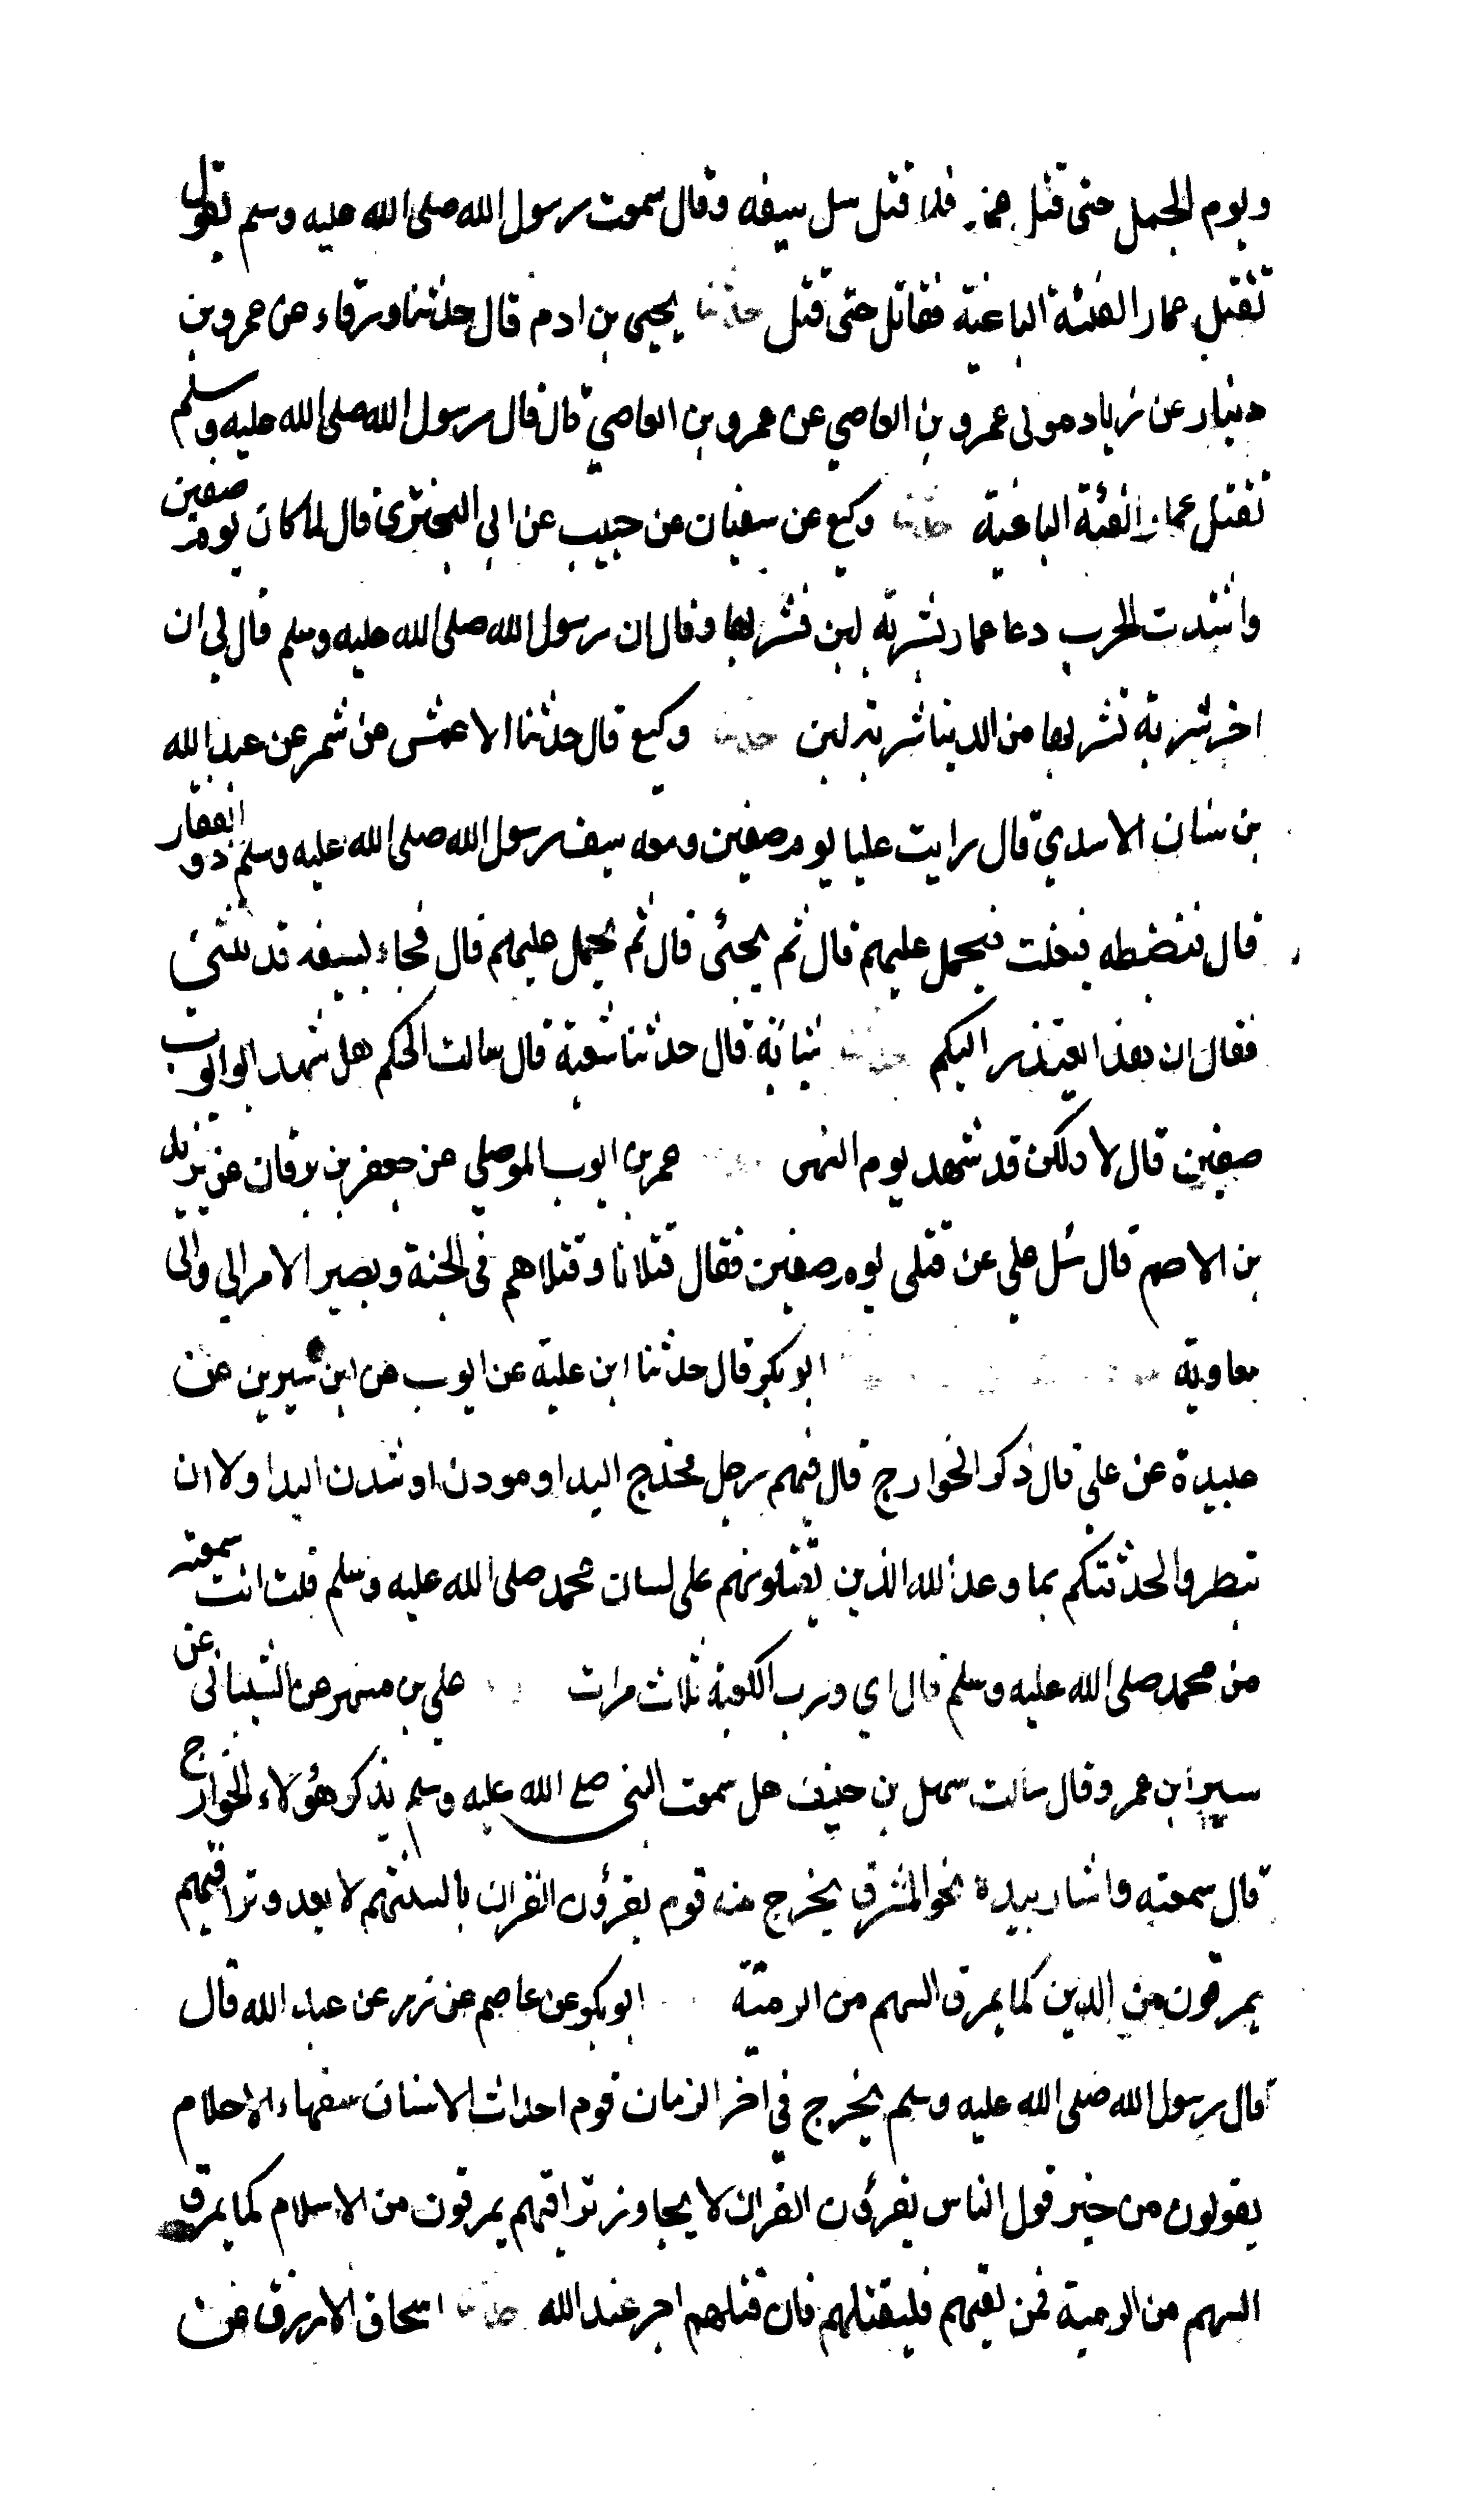 ويوم الجمل حتى قتل عمار فلما قتل سل سيفه وقال سمعت رسول الله صلى الله عليه وسلم يقول
تقتل عمار الفئة الباغية فقاتل حتى قتل حدثنا يحيى بن ادم قال حدثنا ورقاء عن عمرو بن
دينار عن زياد مولى عمرو بن العاصي عن عمرو بن العاصي قال قال رسول الله صلى الله عليه وسلم
تقتل عمار الفئة الباغية حدثنا وكيع عن سفيان عن حبيب عن ابي البختري قال لما كان يوم صفين
واشتدت الحرب دعا عمار بشربة لبن فشربها وقال ان رسول الله صلى الله عليه وسلم قال لي ان
اخر شربة تشربها من الدينا شربة لبن حدثنا وكيع قال حدثنا الاعمش عن شمر عن عبد الله
بن سنان الاسدي قال رايت عليا يوم صفين ومعه سيف رسول الله صلى الله عليه وسلم ذو الفقار
قال فنضبطه فيفلت فيحمل عليهم قال ثم يجئ قال ثم يحمل عليهم قال فجاء بسيفه قد تثنى
فقال ان هذا يعتذر اليكم حدثنا شبابة قال حدثنا شعبة قال سالت الحكم هل شهد ابو ايوب
صفين قال لا ولكن قد شهد يوم النهر عمر بن ايوب الموصلي عن جعفر بن برقان عن يزيد
بن الاصم قال سُل علي عن قتلى يوم صفين فقال قتلانا وقتلاهم في الجنة ويصير الامر الي والى
معاوية ابو بكر قال حدثنا ابن علية عن ايوب عن ابن سيرين عن
عبيدة عن علي قال ذكر الخوارج قال فيهم رجل مخدج اليد او مودن او مثدن اليد او لا ان
تبطروا لحدثتكم بما وعد الله الذين يقتلونهم على لسان محمد صلى الله عليه وسلم قلت انت سمعته
من محمد صلى الله عليه وسلم قال اي ورب الكعبة ثلاث مرات علي بن مسهر عن الشيباني عن
سير ابن عمرو قال سالت سهل بن حنيف هل سمعت النبي صلى الله عليه وسلم يذكر هؤلاء الخوارج
قال سمعته واشار بيده نحو المشرق يخرج منه قوم يقرؤن القران بالسنتهم لا يعدو تراقيهم
يمرقون من الدين كما يمرق السهم من الرمية ابو بكر عن عاصم عن زر عن عبد الله قال
قال رسول الله صلى الله عليه وسلم يخرج في اخر الزمان قوم احداث الاسنان سفهاء الاحلام
يقولون من خير قول الناس يقرؤن القران لا يجاوز تراقيهم يمرقون من الاسلام كما يمرق
السهم من الرمية فمن لقيهم فليقتلهم فان قتلهم اجر عند الله حدثنا اسحاق الازرق عن